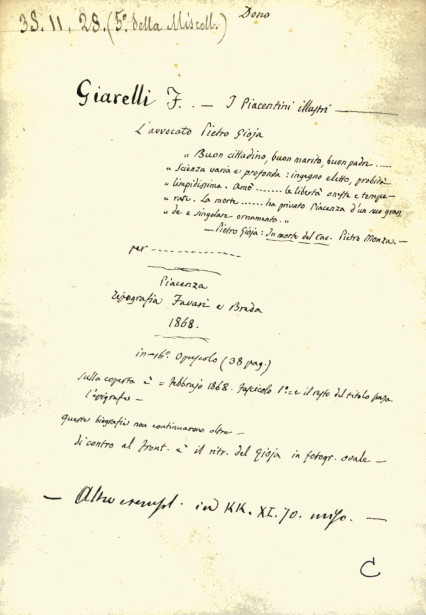 38. 11. 28. (5° della Miscell.) Dono
Giarelli F. — I Piacentini illustri —
L'avvocato Pietro Gioja
" Buon cittadino, buon marito, buon padre .....
" Scienza varia e profonda: ingegno eletto, probità
" limpidissima. Amò ........ la libertà onesta e tempe-
" rata. La morte ...... ha privato Piacenza d'un suo gran
" de e singolare ornamento. "
— Pietro Gioja: In morte del Cav. Pietro Monza. —
per - - - - - - - - - - - -
Piacenza
Tipografia Favari e Breda
1868.
in-16° Opuscolo (38 pag.)
Sulla coperta è = Febbrajo 1868. Fascicolo 1° = e il resto del titolo senza
l'epigrafe —
Queste biografie non continuarono oltre —
di contro al front. è il ritr. del Gioja in fotogr. ovale —
— Altro esempl. in KK. XI. 70. —
C